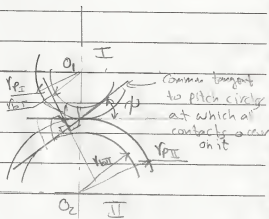 O1 I
rPI
rbI
common tangent
to pitch circle
at which all
contacts occur
on it
ψ
rbII
rPII
O2 II